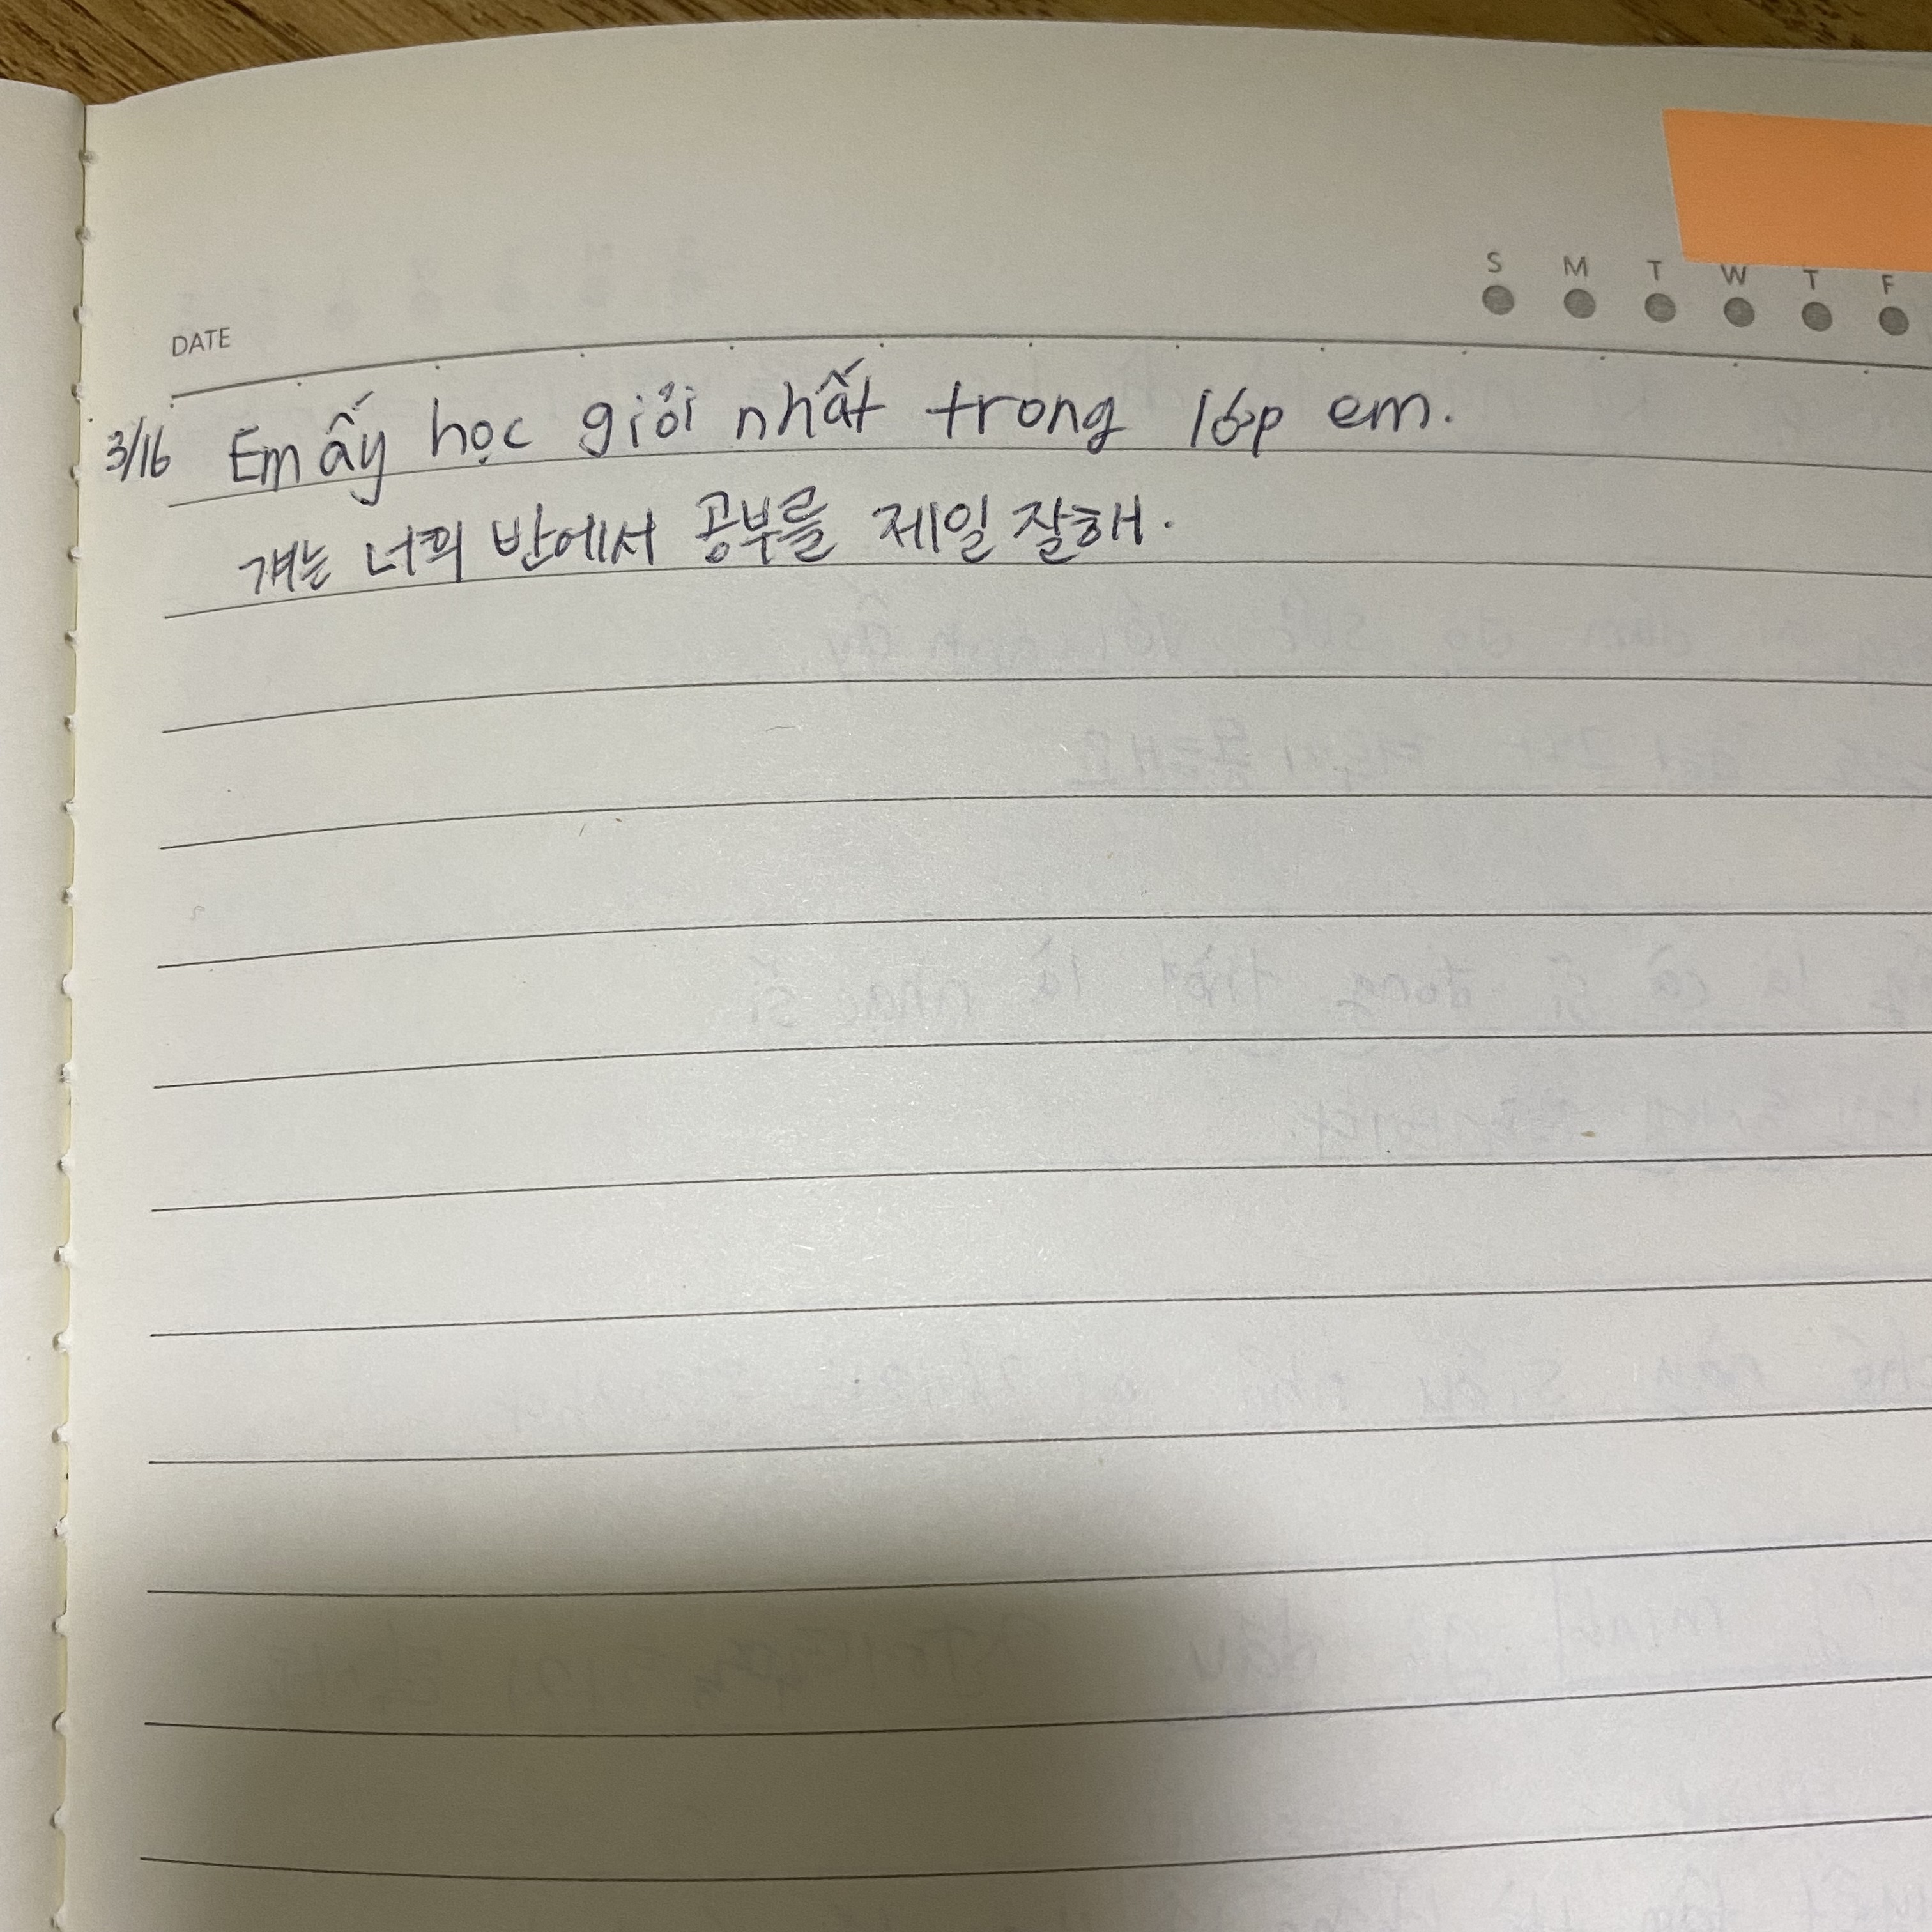 S M T W T F
DATE
3/16 Em ấy học giỏi nhất trong lớp em.
걔는 너희 반에서 공부를 제일 잘해.